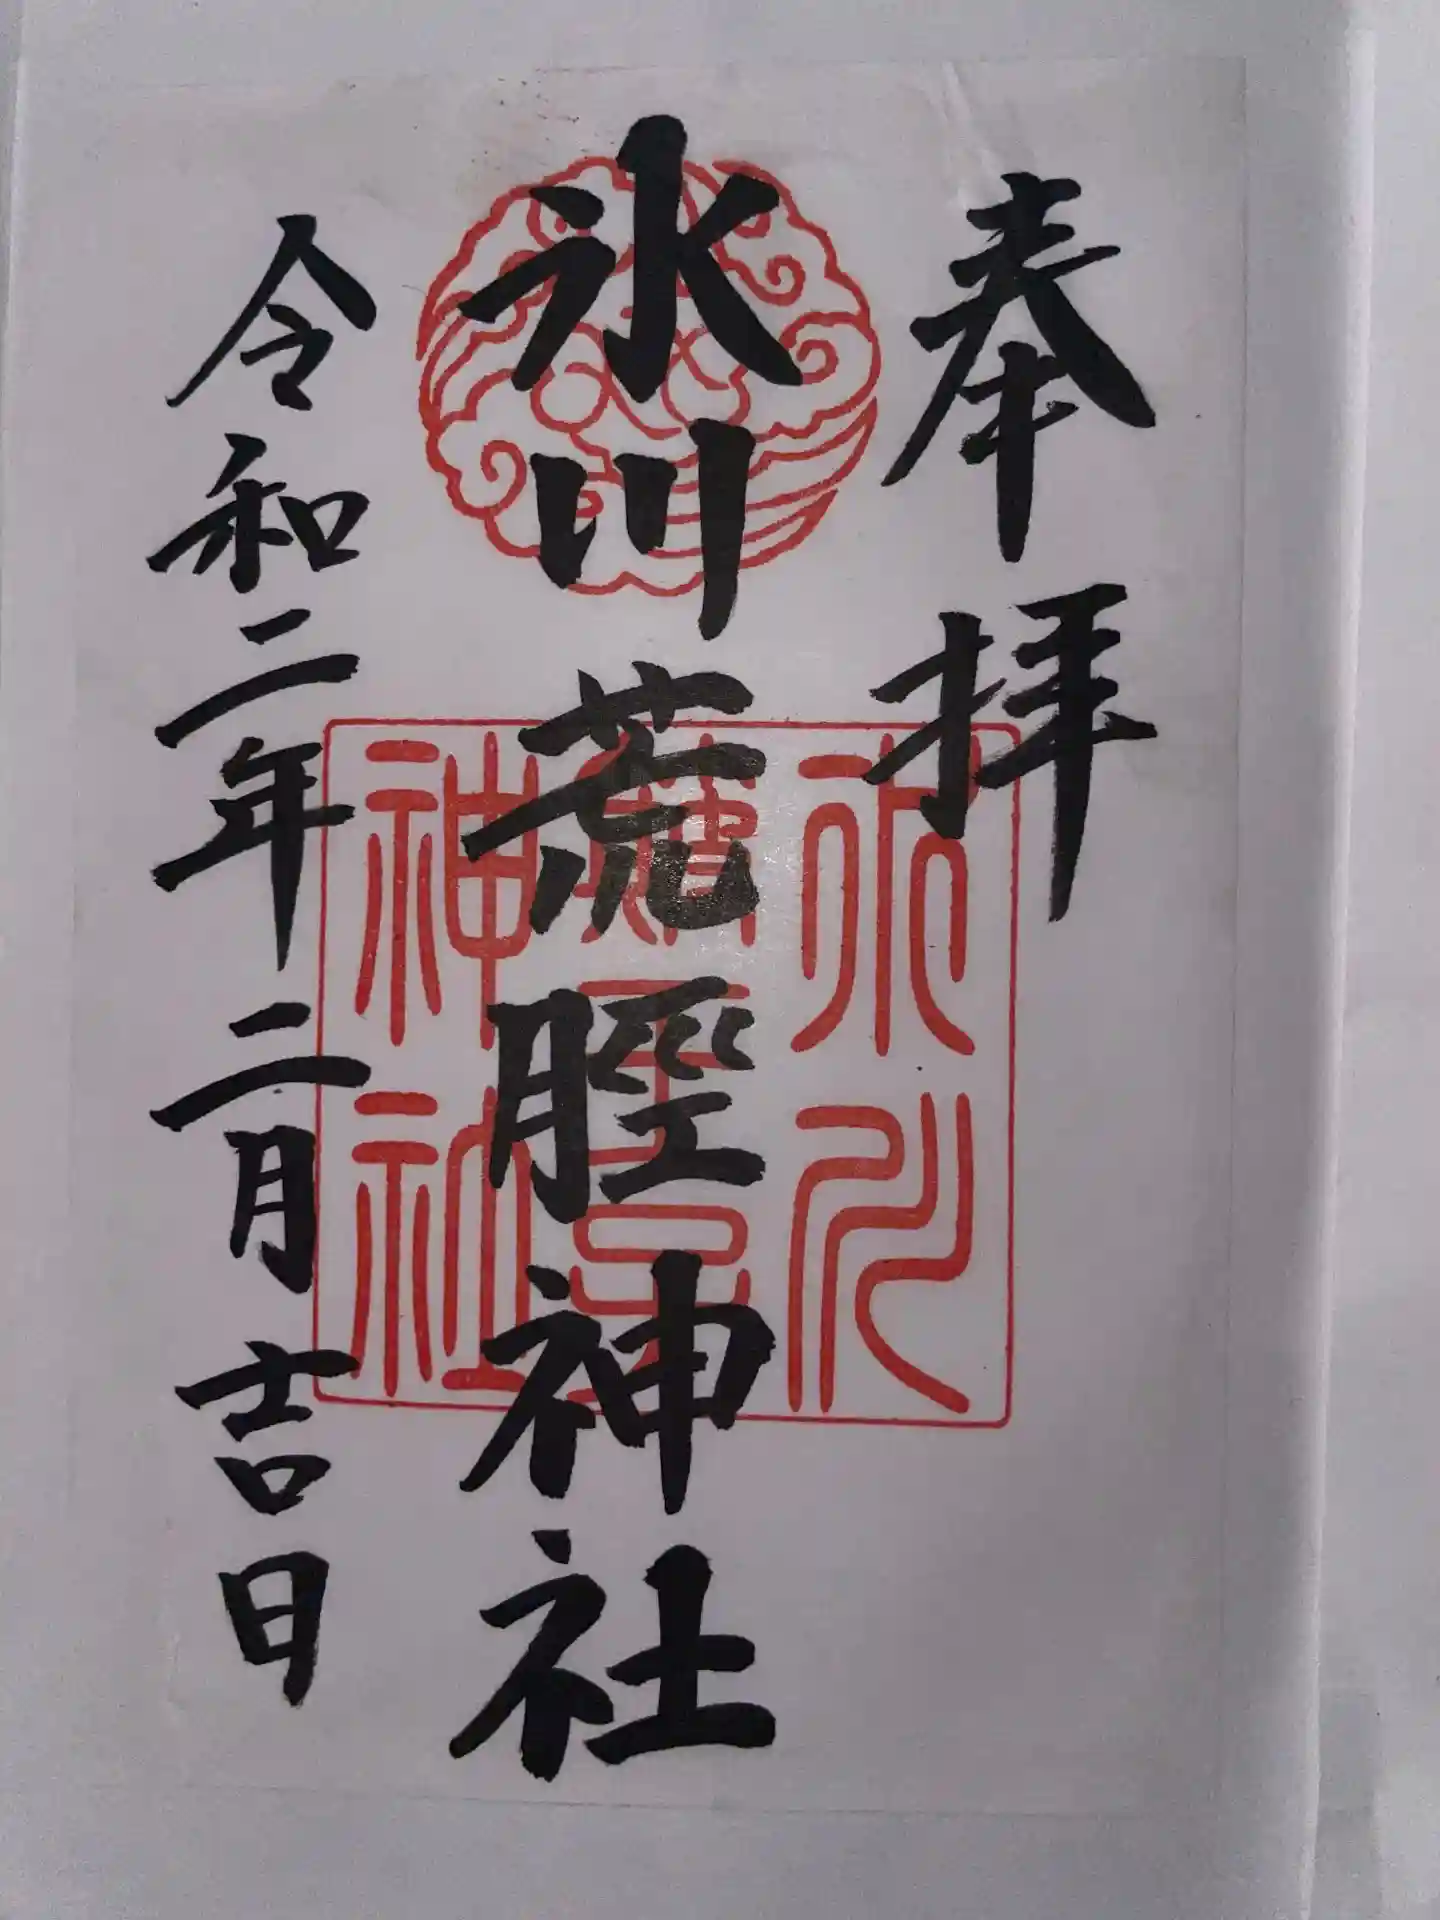 奉拝
氷川荒脛神社
令和二年二月吉日
氷川
神社